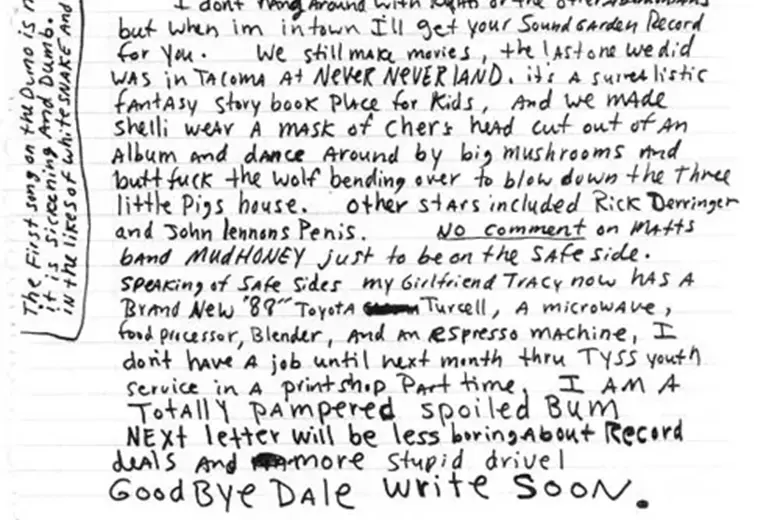 I dont Hang Around with or the other
but when im in town I'll get your Sound Garden Record
for you. We still make movies, the last one we did
WAS in TACOMA At NEVER NEVER LAND. its A surrealistic
fantasy story book Place for Kids, And we made
Shelli wear A mask of Cher's head cut out of An
Album and dance around by big mushrooms and
buttfuck the wolf bending over to blow down the three
little Pigs house. other stars included Rick Derringer
and John lennons Penis. No comment on Matts
band MUDHONEY just to be on the SAfe side.
speaking of SAfe Sides my Girlfriend TRACY now HAS A
BRAND New "88" Toyota Turcell, A microwave,
food processor, Blender, And An espresso machine, I
don't have A job until next month thru TYSS youth
service in A printshop Part time. I AM A
Totally pampered spoiled Bum
NEXt letter will be less boring About Record
deals And more stupid drivel
GoodBye DALE Write SOON.
The First song on the Demo is
it is sickening And Dumb.
in the likes of WhiteSNAKE And